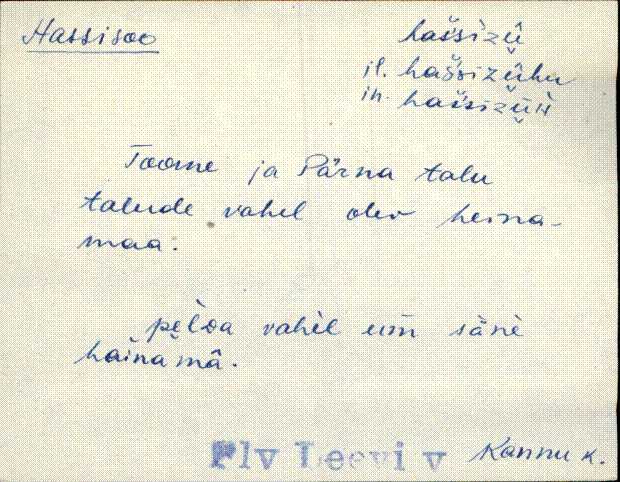 Hassisoo
haśśizū̬
il. haśśizū̬hu
in. haśśizū̬n
Toome ja Pärna talu
talude vahel olev heina-
maa.
pèlda vahèl um sänè
hainamâ.
Plv Leevi v Kannu k.